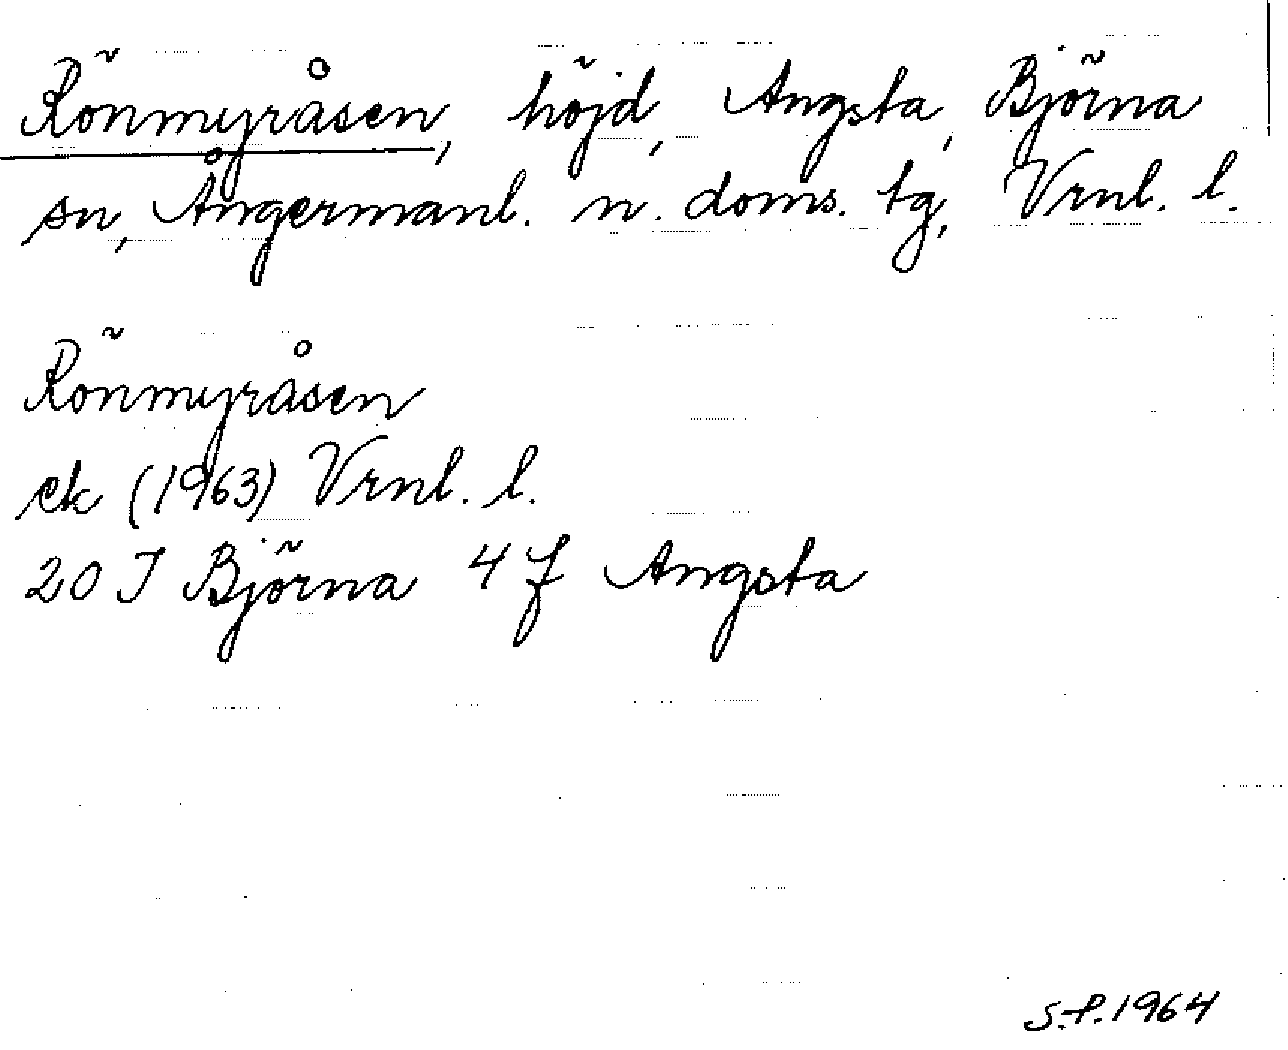 Rönmyråsen, höjd, Angsta, Björna
sn, Ångermanl. n. doms. tg, Vrnl. l.
Rönmyråsen
ek (1963) Vrnl. l.
20 J Björna 4 f Angsta
S.-P. 1964